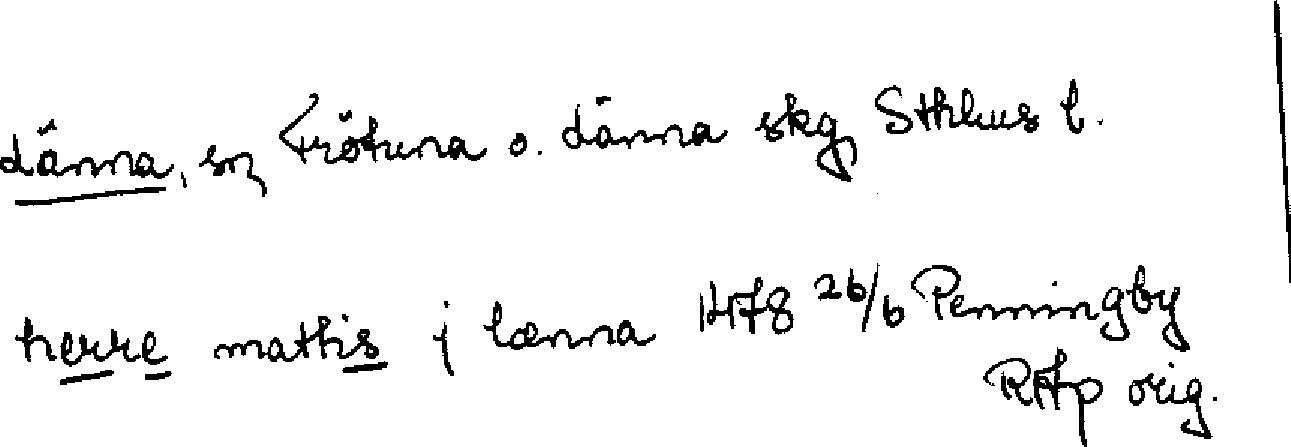 Länna, sn, Frötuna o. Länna skg, Sthlms l.
herre mattis j lænna 1478 26/6 Penningby
RAp orig.